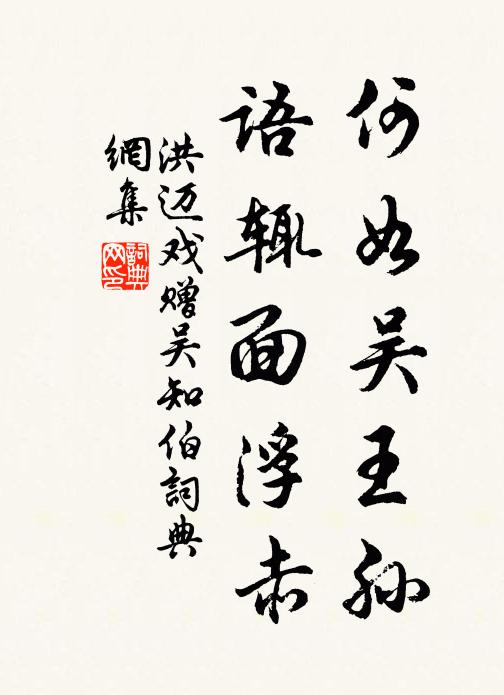 何如吴王孙
语辄面浮赤
洪迈戏赠吴知伯詞典
網集
詞典网印